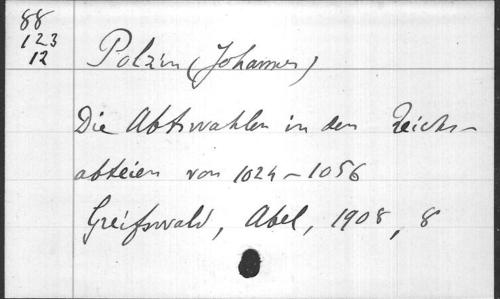 88
123
12
Polzin (Johannes)
Die Abtswahlen in den Reichs-
abteien von 1024-1056
Greifswald, Abel, 1908, 8